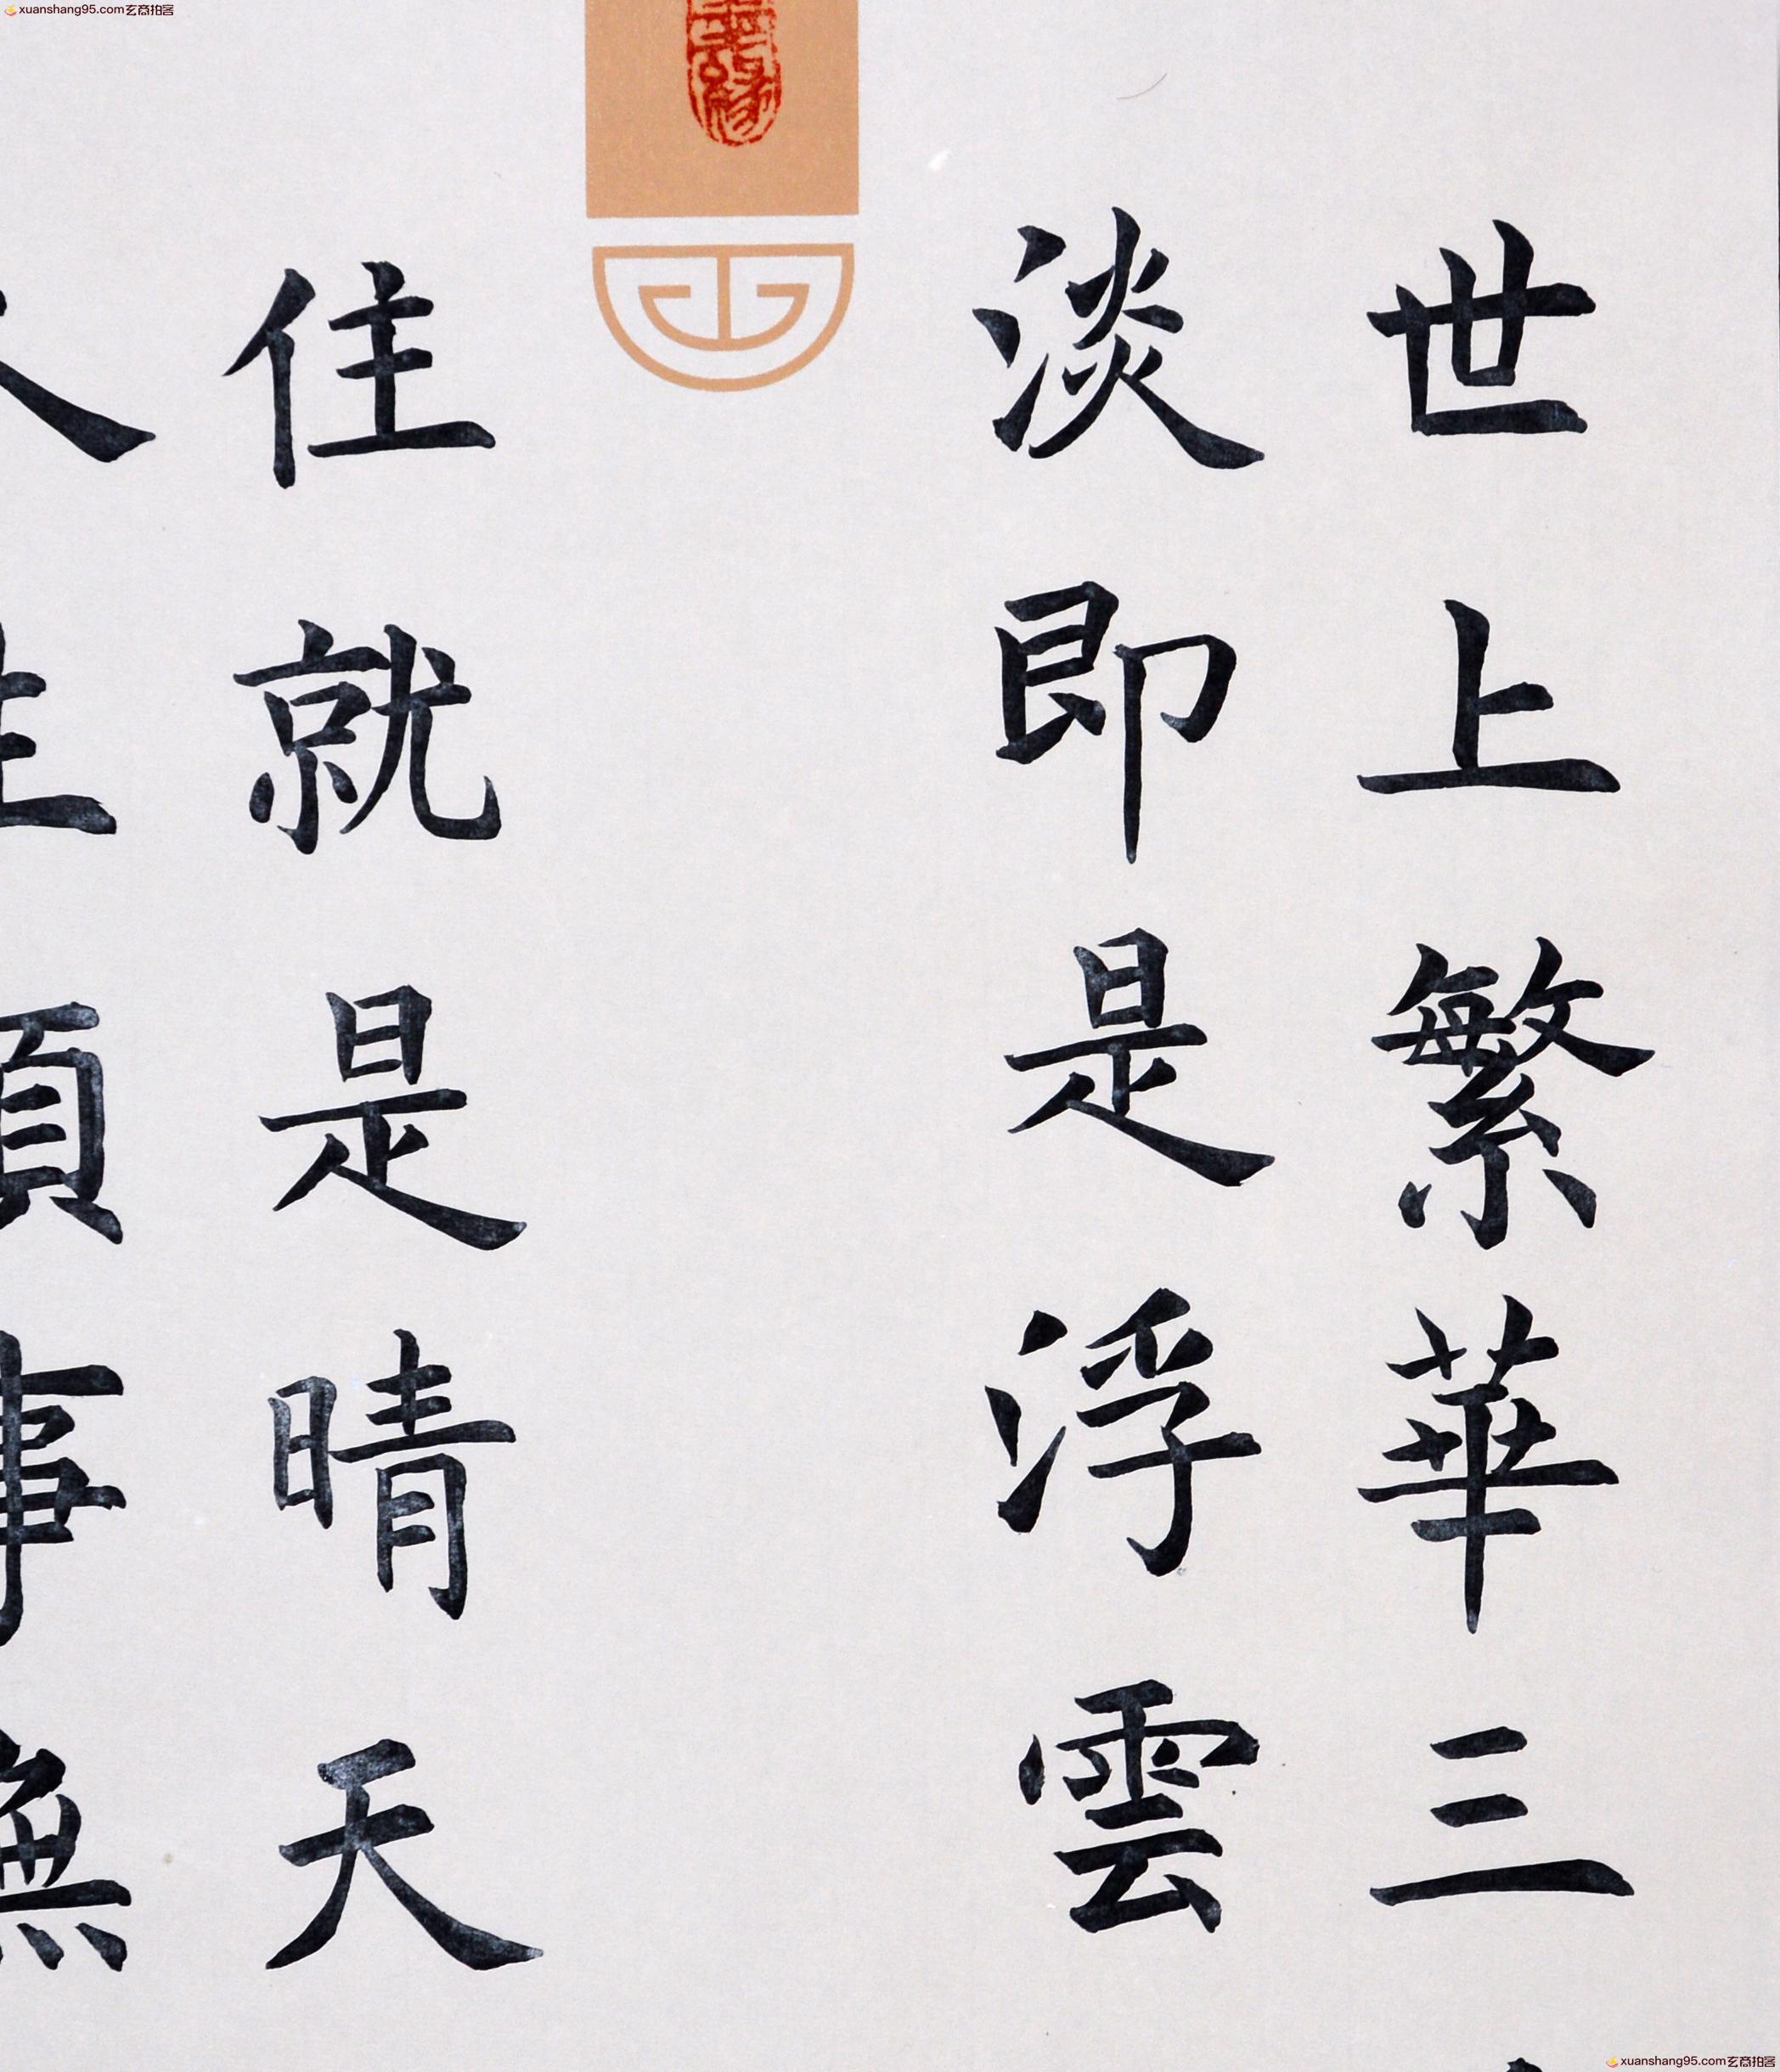 xuanshang95.com玄商拍客
世上繁華三
淡即是浮雲
住就是晴天
事無
xuanshang95.com玄商拍客